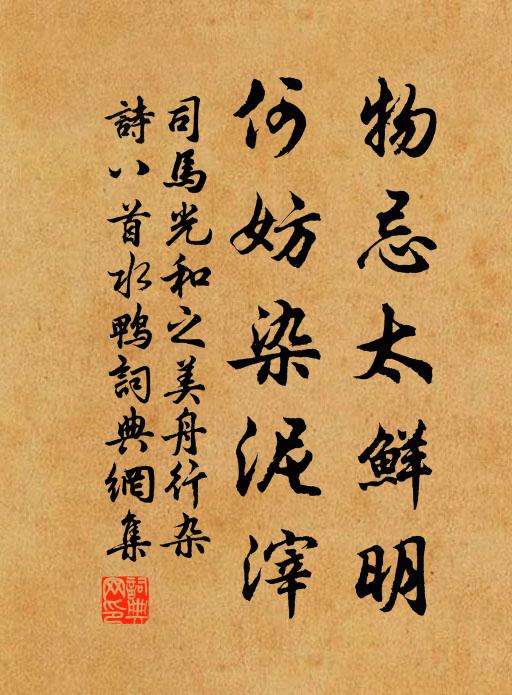 物忌太鮮明
何妨染泥滓
司馬光和之美舟行杂
詩八首水鴨詞典網集
詞典網印